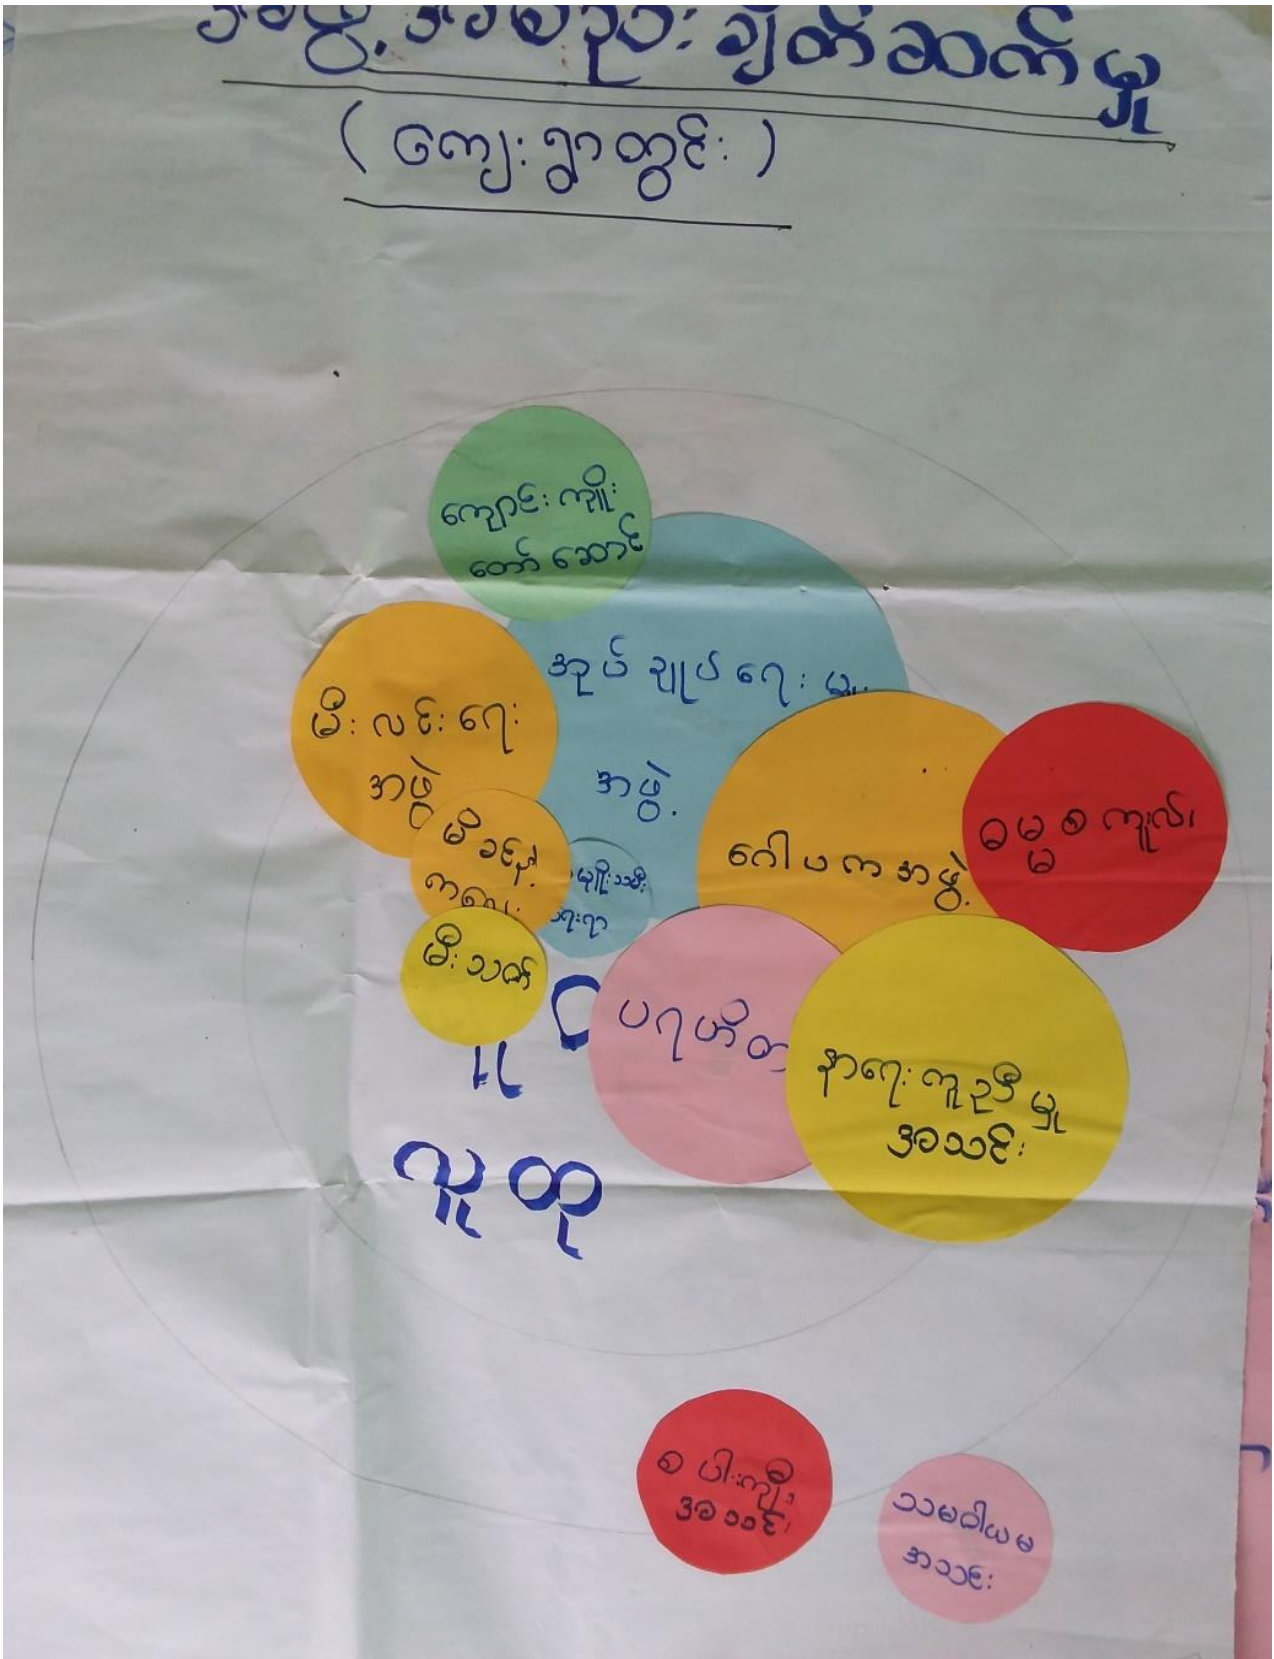 အဖွဲ့အစည်းချိတ်ဆက်မှု
(ကျေးရွာတွင်း)
ကျောင်းကျိုး
တော်ဆောင်
အုပ်ချုပ်ရေးမှူး
အဖွဲ့
မီးလင်းရေး
အဖွဲ့
မိခင်နှင့်
ကလေး
မီးသတ်
ဂေါပကအဖွဲ့
ဓမ္မစကူးလ်
ပရဟိတ
နာရေးကူညီမှု
အသင်း
လူထု
စပါးကျီ
အသင်း
သမဝါယမ
အသင်း